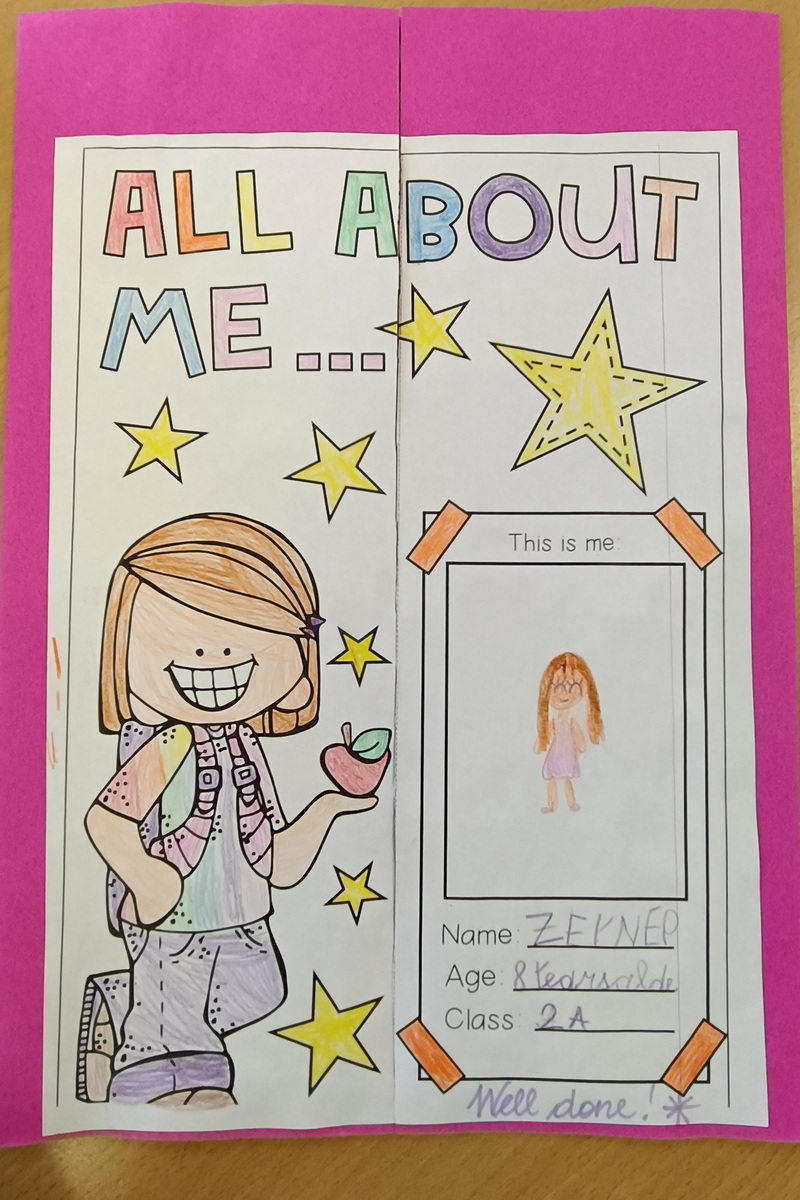 ALL ABOUT
ME...
This is me:
Name: ZEYNEP
Age: 8 Yearsolde
Class: 2A
Well done!